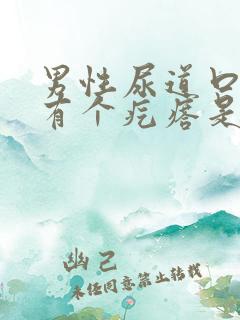 男性尿道口
有个疙瘩是
幽己
未经同意禁止转载